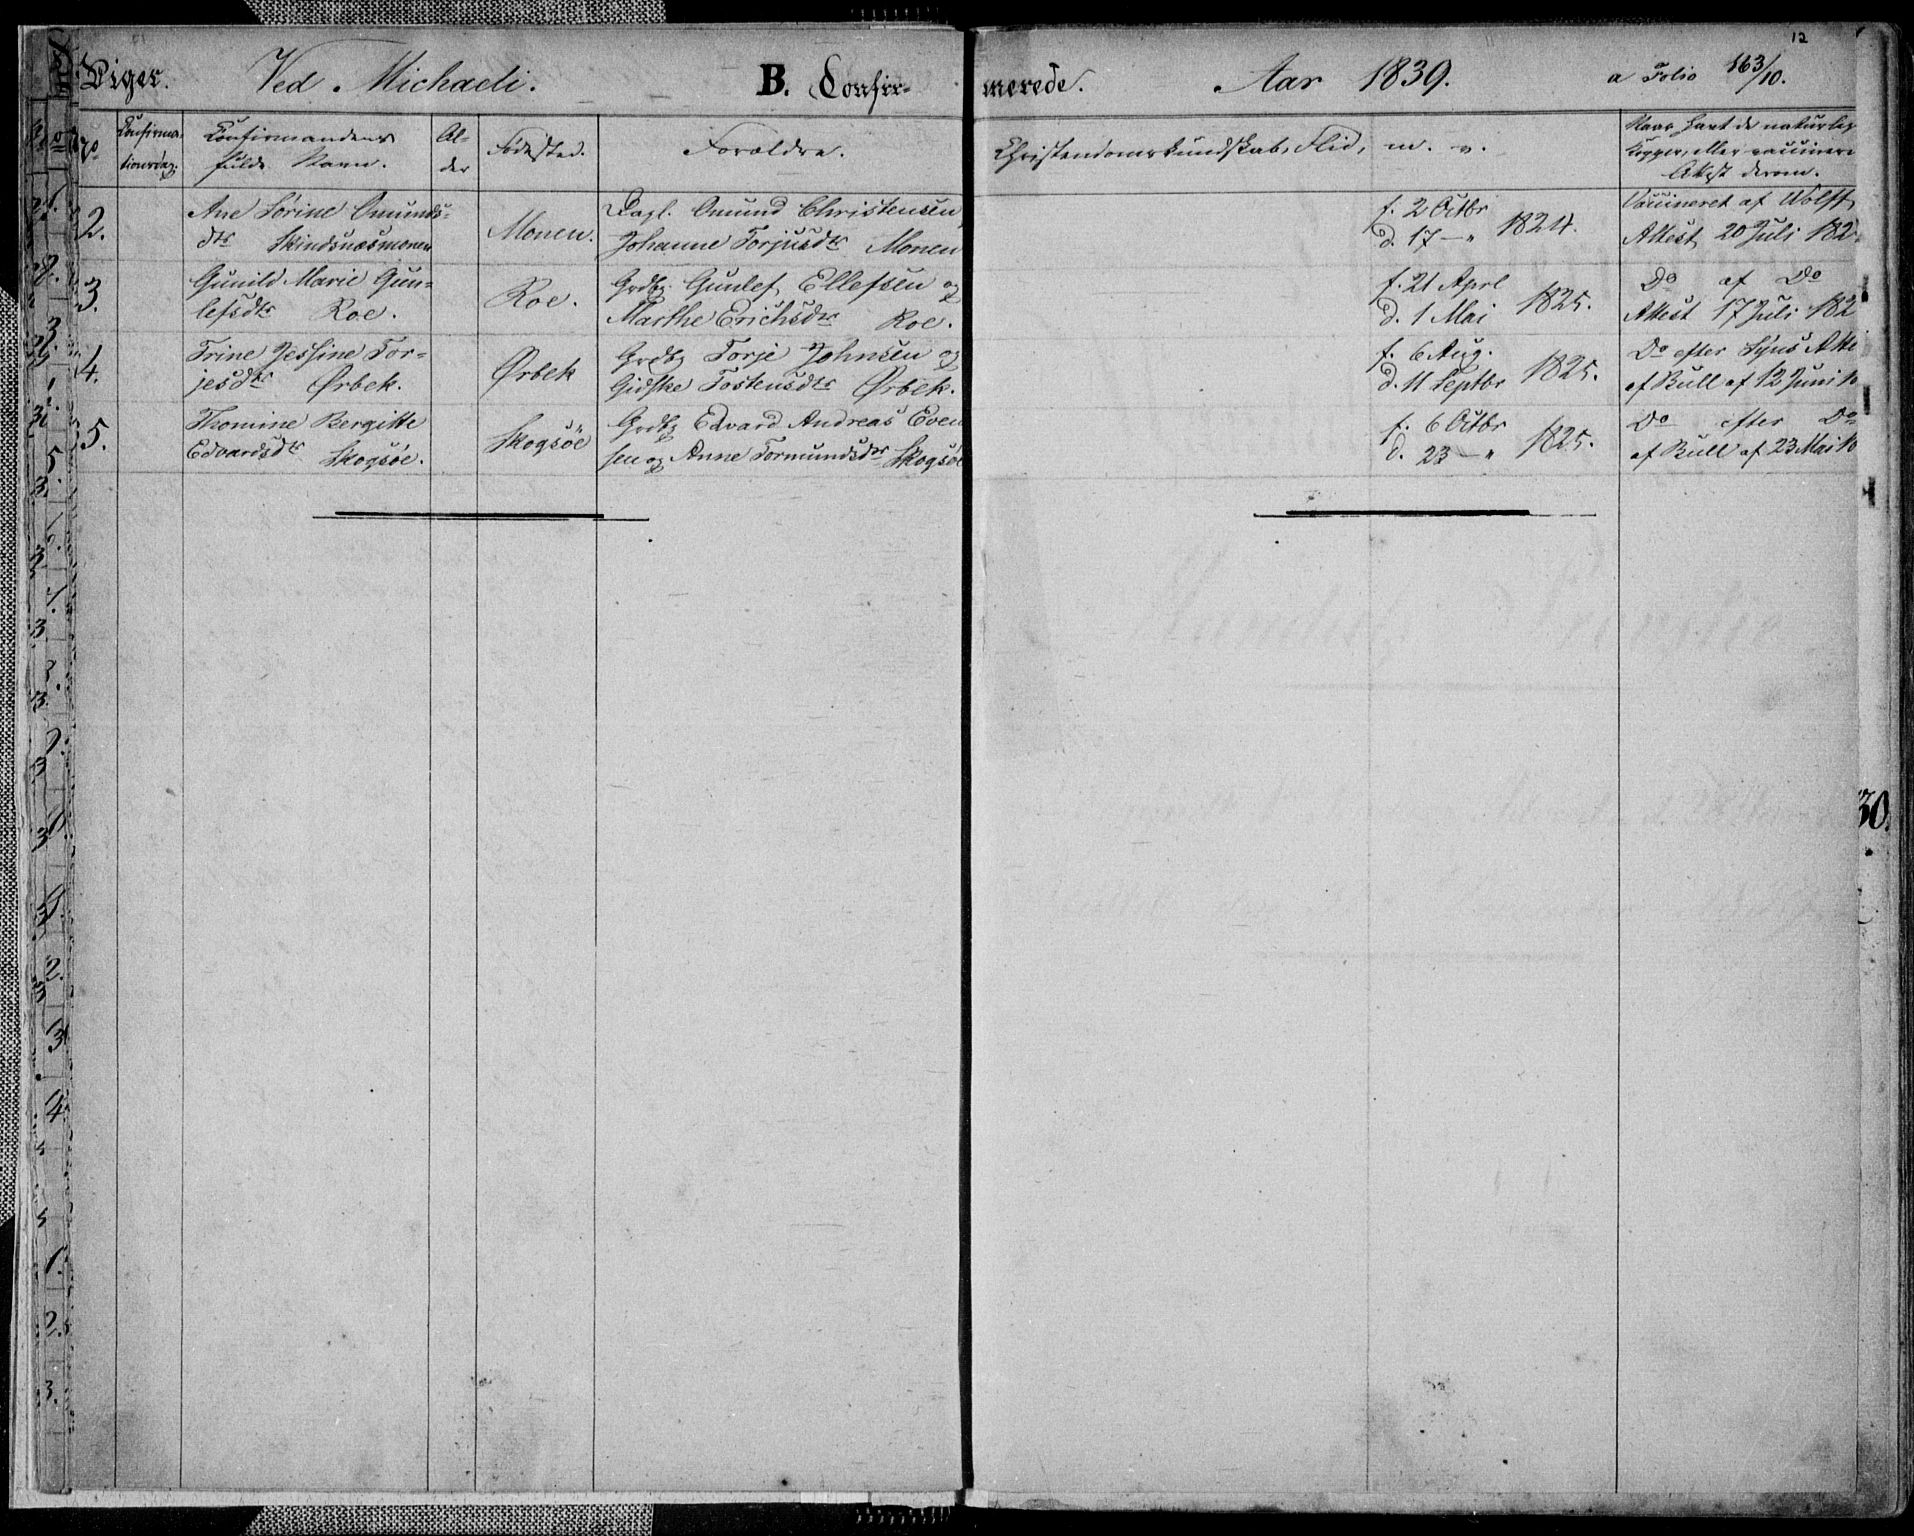 12
Piger. Ved Michaeli. B. Confir- merede. Aar 1839. a Folio 163/10.
No
Confirma-
tionsdag.
Confirmandens
fulde Navn.
Al-
der
Fødested.
Forældre.
Christendomskundskab, Flid, m. v.
Naar havt de naturlig
Kopper, eller vaccinere
Attest derom.
2.
Ane Sørine Omunds-
dtr Skindsnæsmonen
Monen.
Dagl. Omund Christensen
Johanne Torjusdtr Monen
f. 2 Octbr
d. 17 — " 1824.
Vaccineret af Wolff
Attest 20 Juli 182
3.
Gunild Marie Gun-
lefsdtr Roe.
Roe.
Grdbr Gunlef Ellefsen og
Marthe Erichsdtr Roe.
f. 21 Aprl
d. 1 Mai 1825.
Do af Do
Attest 17 Juli 182
4.
Trine Jessine Tor-
jesdtr Ørbek.
Ørbek
Grdbr Torje Johnsen og
Gidske Tostensdtr Ørbek.
f. 6 Aug.
d. 11 Septbr 1825.
Do efter Syns Atte
af Bull af 12 Juni
5.
Thomine Bergitte
Edvardsdtr Skogsöe.
Skogsöe
Grdbr Edvard Andreas Even
sen og Anne Tormundsdtr Skogsöe
f. 6 Octbr
d. 23 — " 1825.
Do efter Do
af Bull af 23 Mai
30.